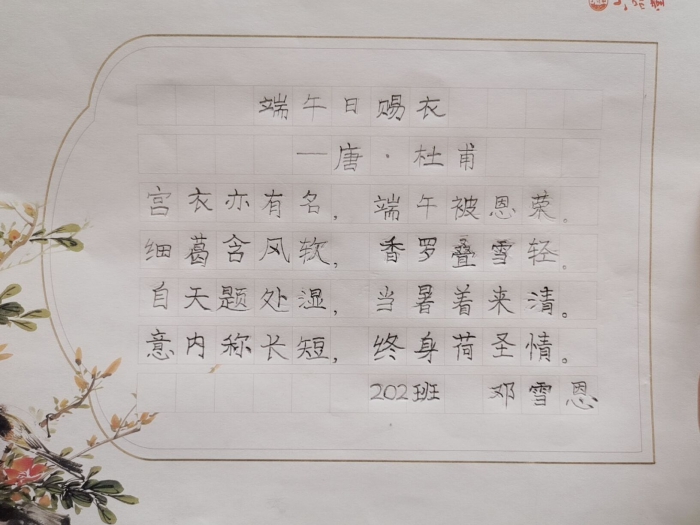 端午日赐衣
—唐·杜甫
宫衣亦有名，端午被恩荣。
细葛含风软，香罗叠雪轻。
自天题处湿，当暑着来清。
意内称长短，终身荷圣情。
202班 邓雪恩